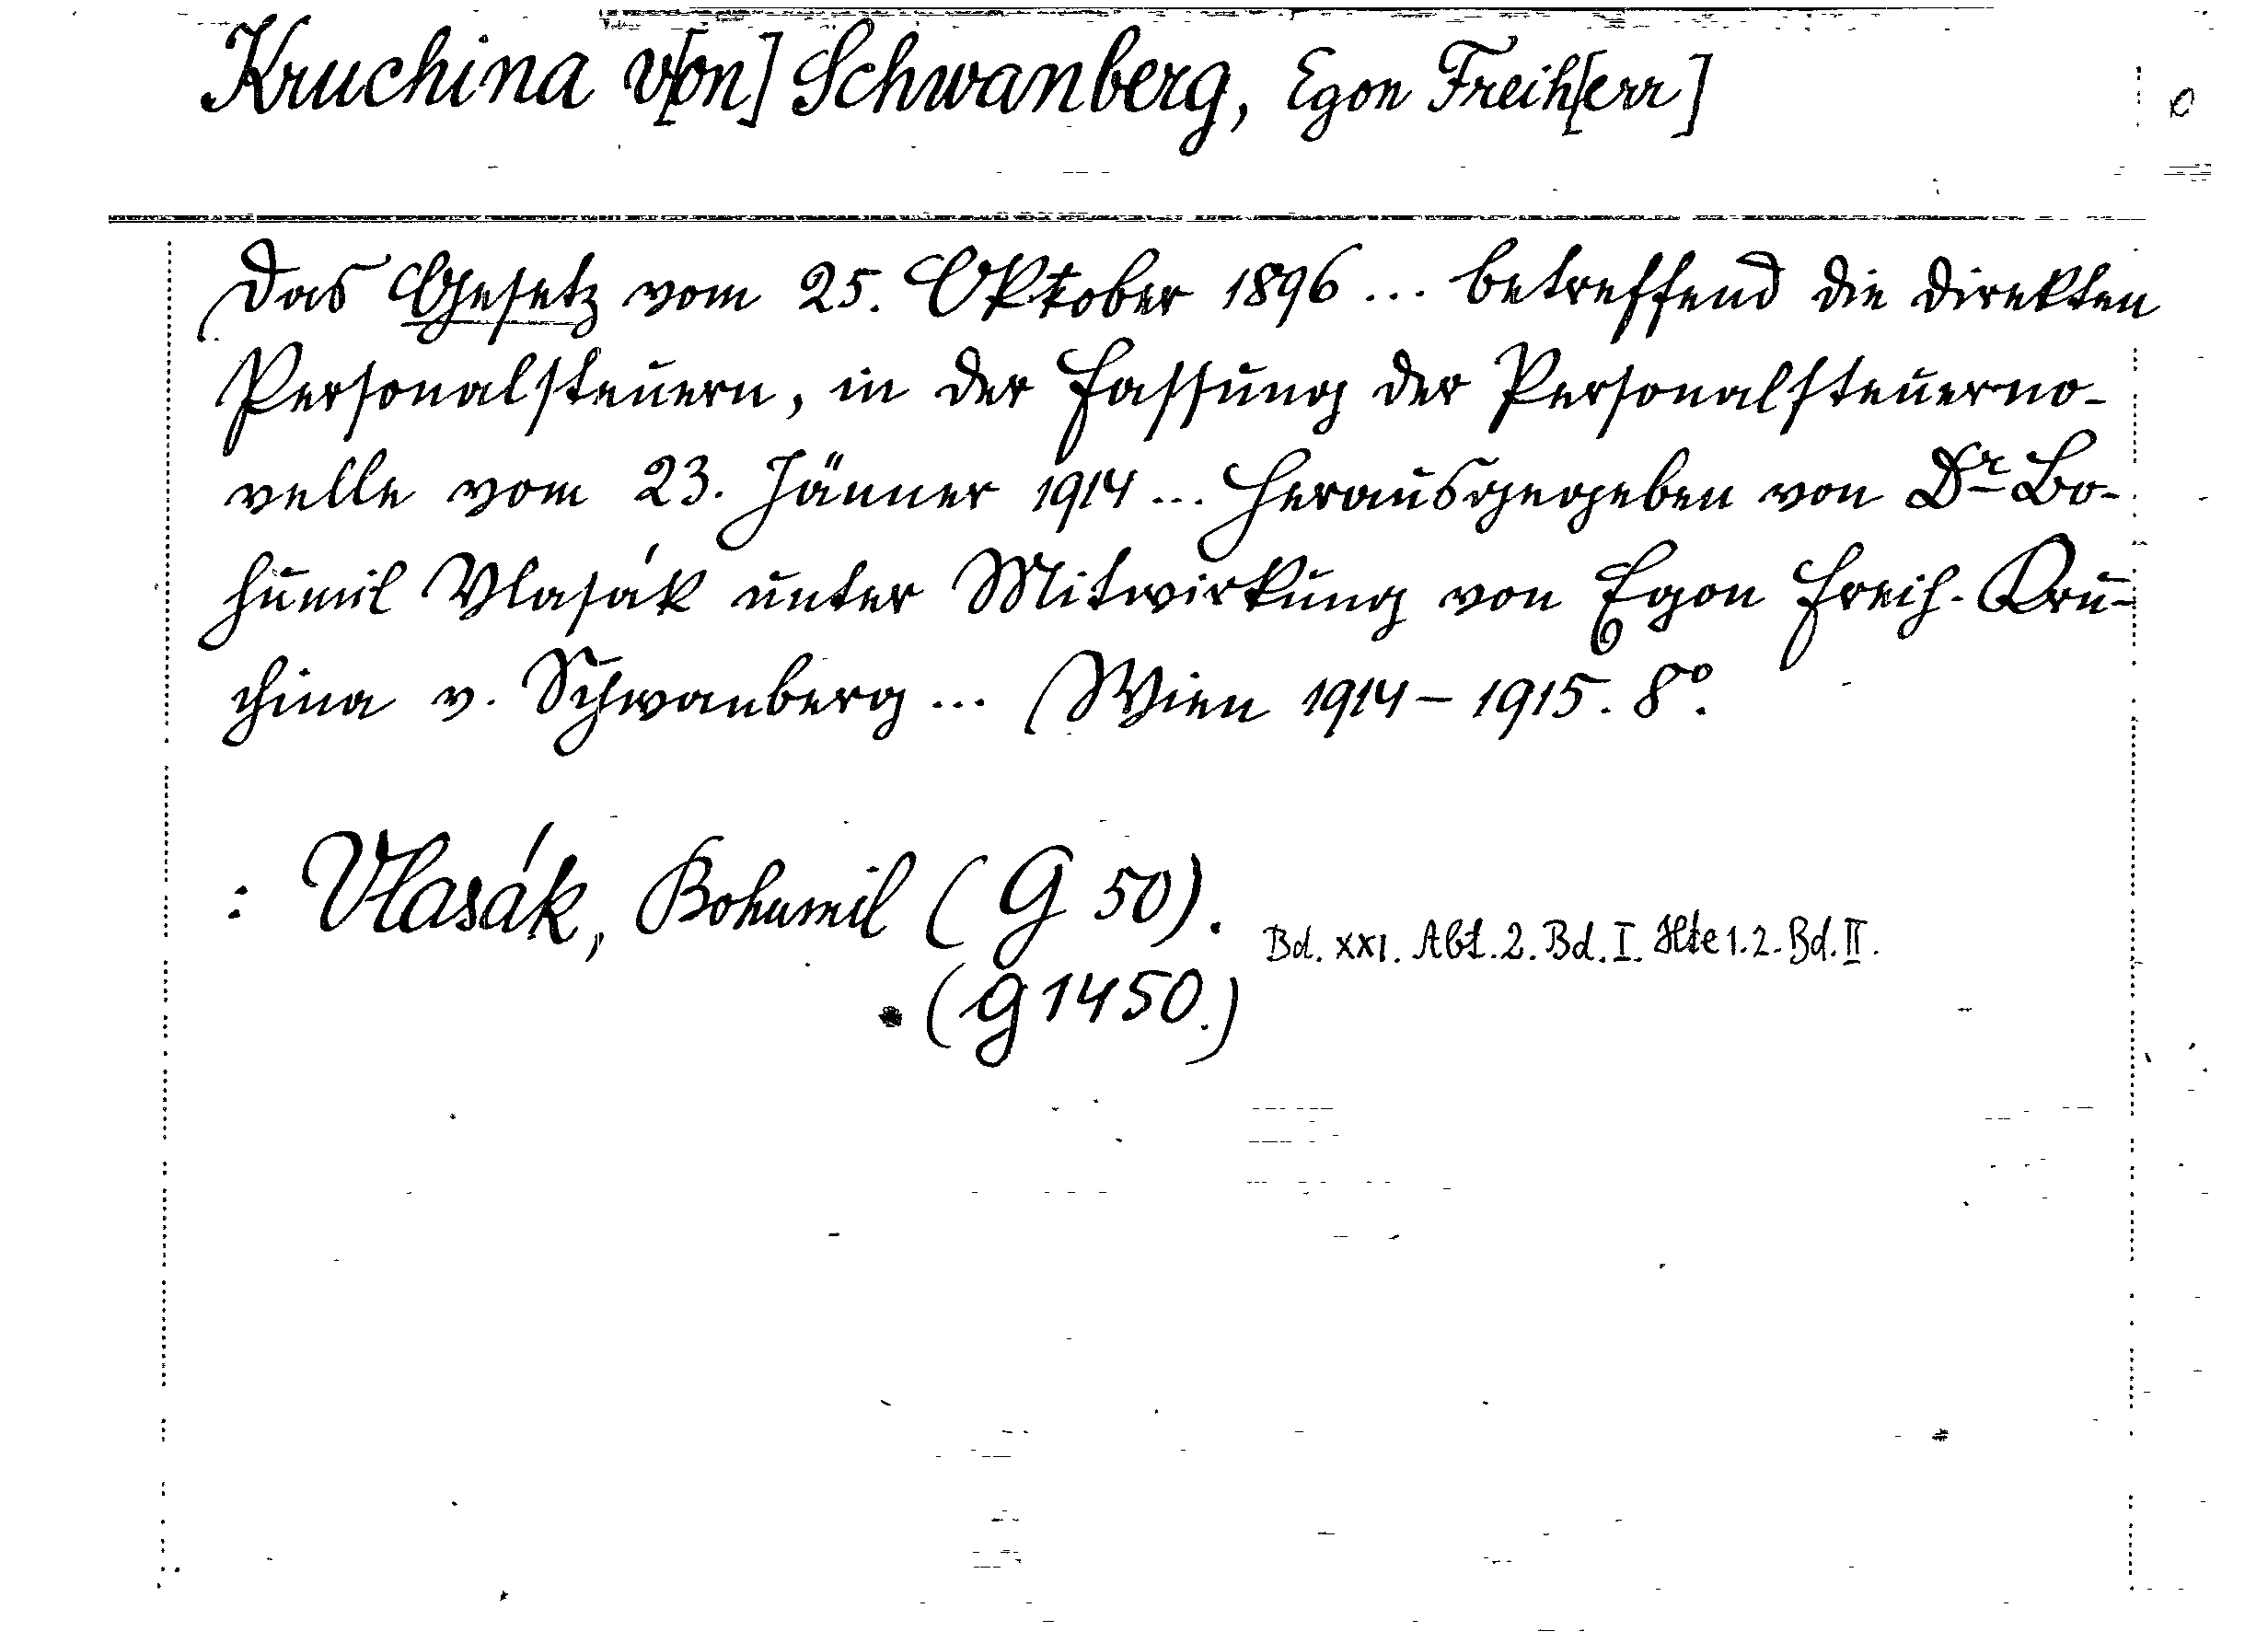 Kruchina v[on] Schwanberg, Egon Freih[err]
Das Gesetz vom 25. Oktober 1896 ... betreffend die direkten
Personalsteuern, in der Fassung der Personalsteuerno-
velle vom 23. Jänner 1914 ... Herausgegeben von Dr Bo-
humil Vlasák unter Mitwirkung von Egon Freih. Kru-
china v. Schwanberg ... (Wien 1914 - 1915. 8°.
: Vlasák, Bohumil (G 50). Bd. XXI. Abt. 2. Bd. I. Hlte 1. 2. Bd. II.
(G 1450.)